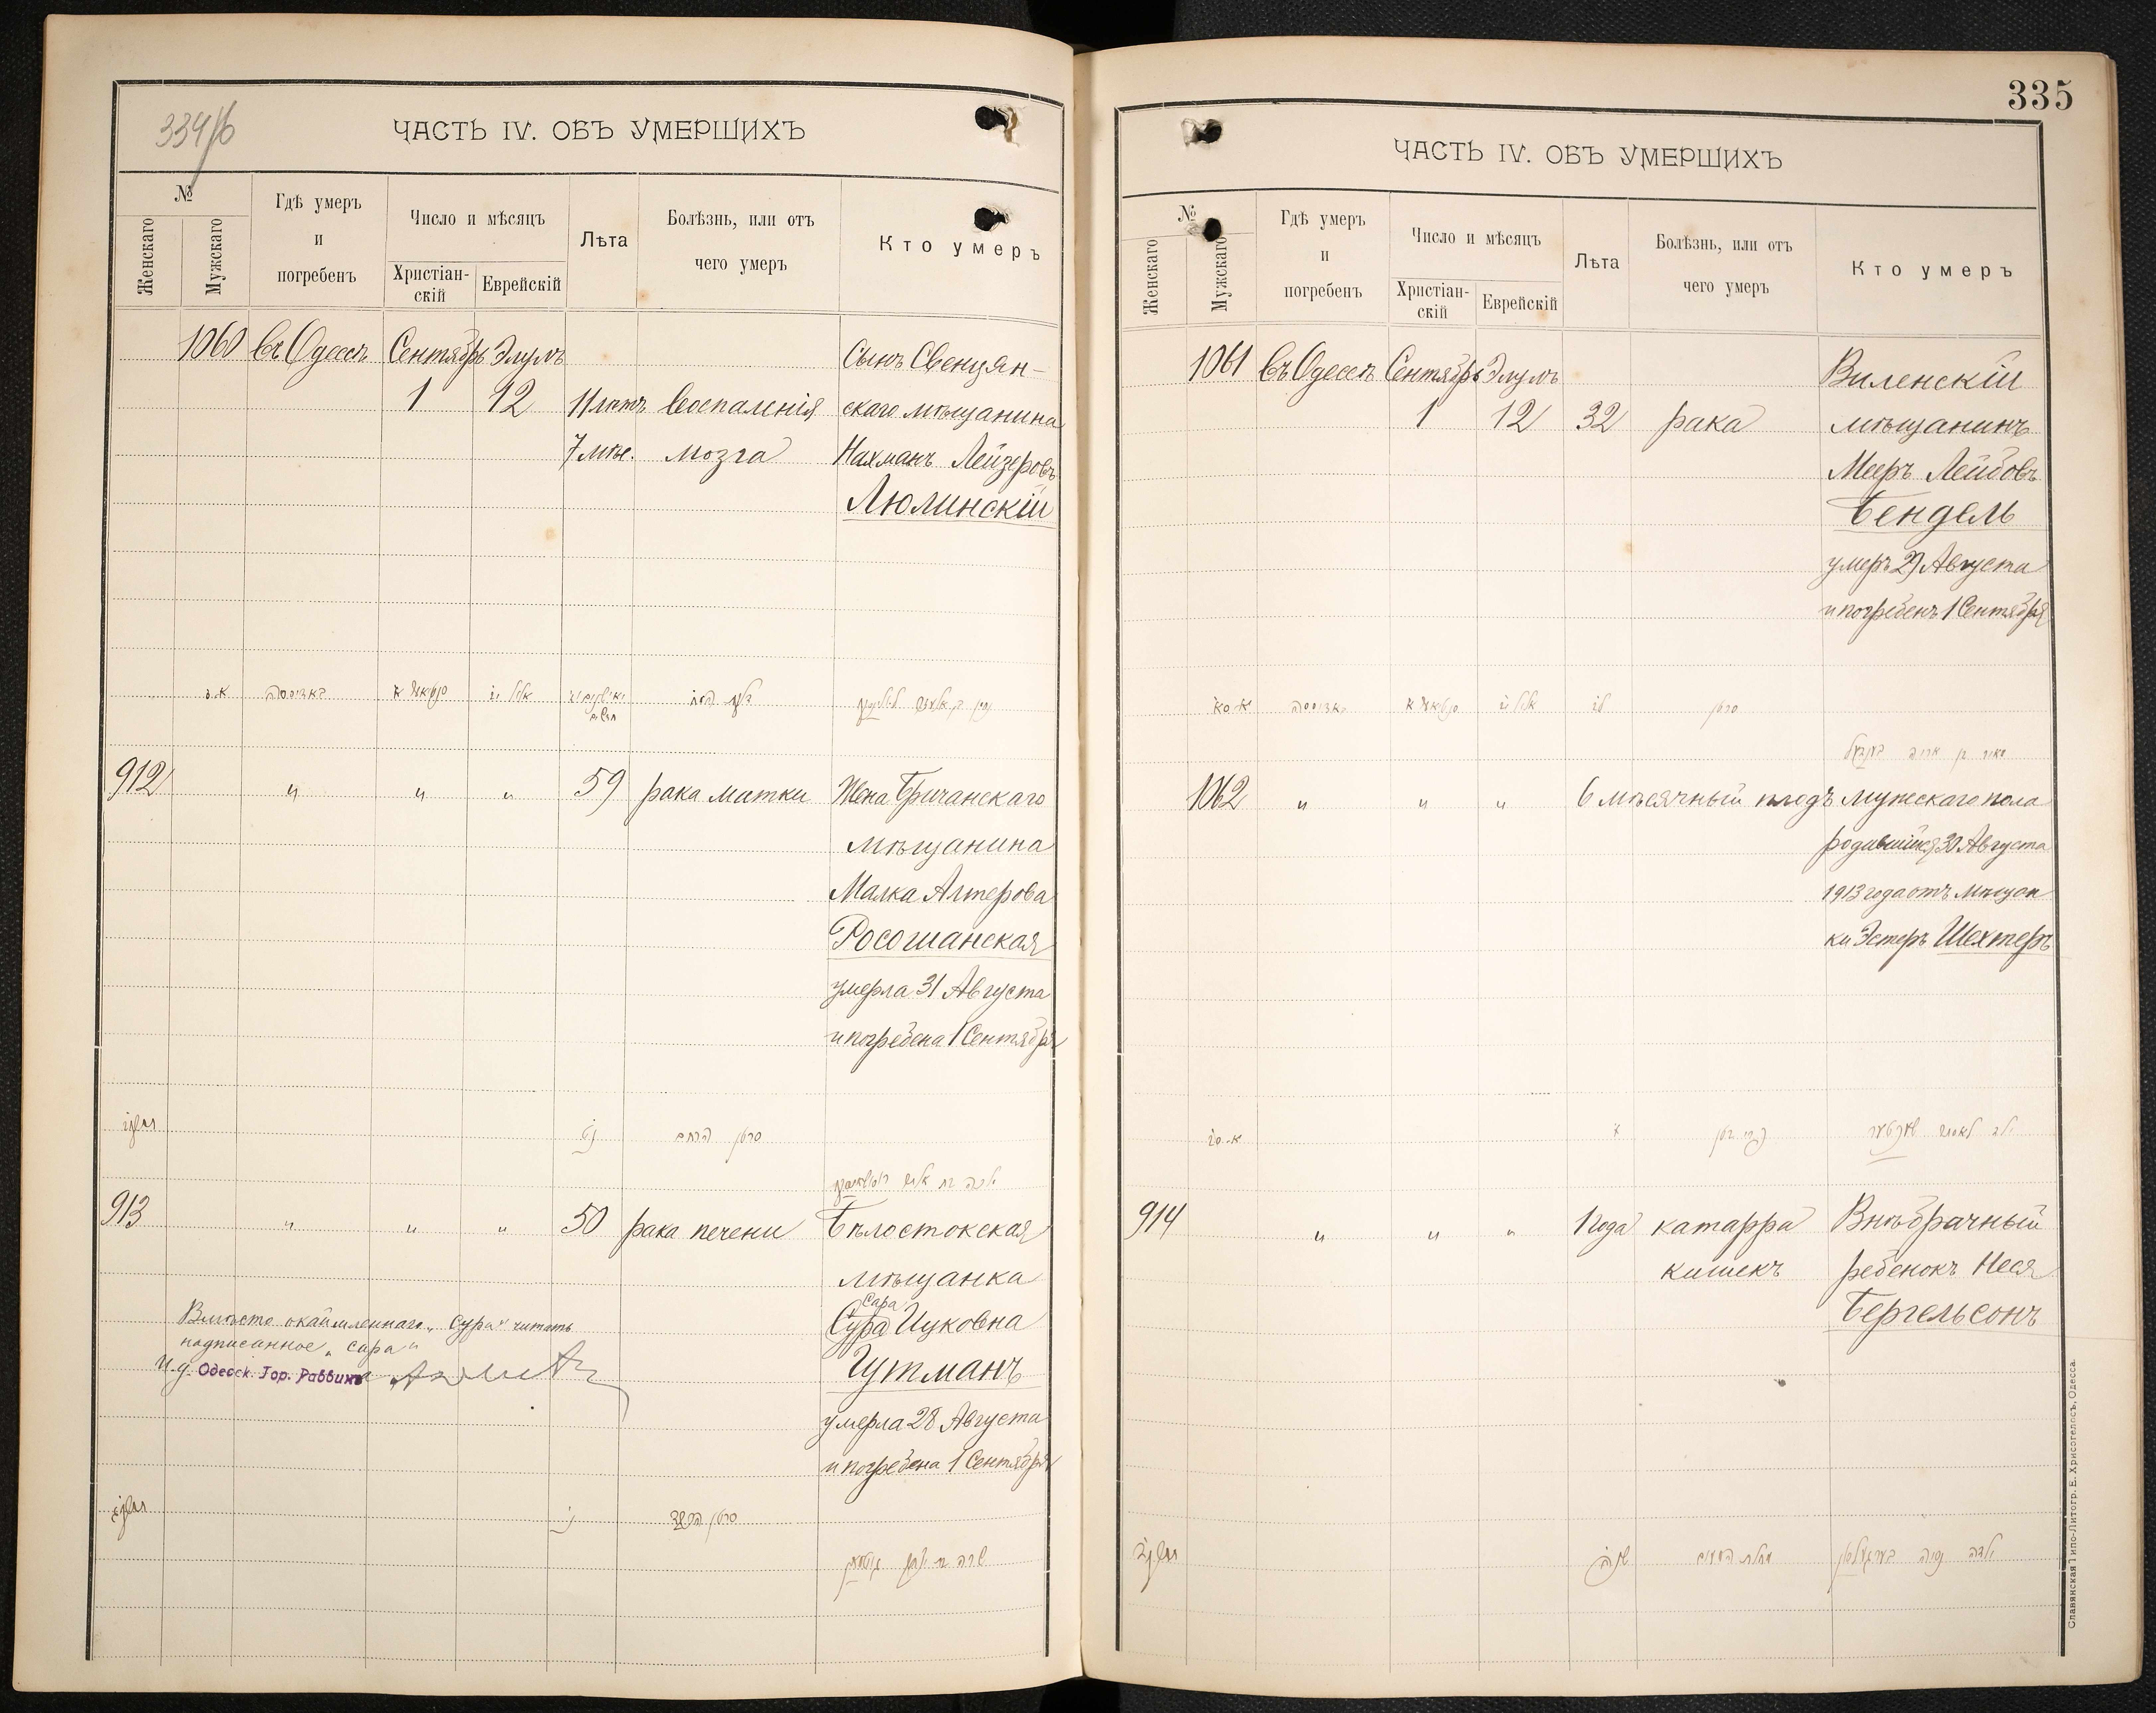 334/б
ЧАСТЬ IV. ОБЪ УМЕРШИХЪ
№
Женскаго
Мужскаго
Гдѣ умеръ
и
погребенъ
Число и мѣсяцъ
Христіан-
скій
Еврейскій
Лѣта
Болѣзнь, или отъ
чего умеръ
Кто умеръ
1060 въ Одессѣ Сентябрь Элулъ Сынъ Свенцян-
1 12 11 лѣтъ воспаленія скаго мѣщанина
7 мѣс. мозга Нахманъ Лейзеровъ
Люлинскій
באדעססה
912 " " " 59 рака матки Жена Бричанскаго
мѣщанина
Малка Алтерова
Росошанская
умерла 31 Августа
и погребена 1 Сентября
סרטן הרחם
913 " " " 50 рака печени Бѣлостокская
мѣщанка
Сара
Сура Ицковна
Гутманъ
умерла 28 Августа
и погребена 1 Сентября
Вмѣсто окаймленнаго „Сура" читать
надписанное „Сара"
И.д. Одесск. Гор. Раввина
סרטן הכבד
שרה בת יצחק גוטמאן
335
ЧАСТЬ IV. ОБЪ УМЕРШИХЪ
№
Женскаго
Мужскаго
Гдѣ умеръ
и
погребенъ
Число и мѣсяцъ
Христіан-
скій
Еврейскій
Лѣта
Болѣзнь, или отъ
чего умеръ
Кто умеръ
1061 въ Одессѣ Сентябрь Элулъ Виленскій
1 12 32 рака мѣщанинъ
Мееръ Лейбовъ
Бендель
умеръ 29 Августа
и погребенъ 1 Сентября
סרטן
מאיר בן אריה בענדעל
1062 " " " 6 мѣсячный плодъ мужескаго пола
родившійся 30 Августа
1913 года отъ мѣщан
ки Эстеръ Шехтеръ
914 " " " 1 года катарра Внѣбрачный
кишекъ ребенокъ Неся
Бергельсонъ
ילדה נסיה בערגעלסאן
Славянская Типо-Литогр. Е. Хрисогелосъ, Одесса.